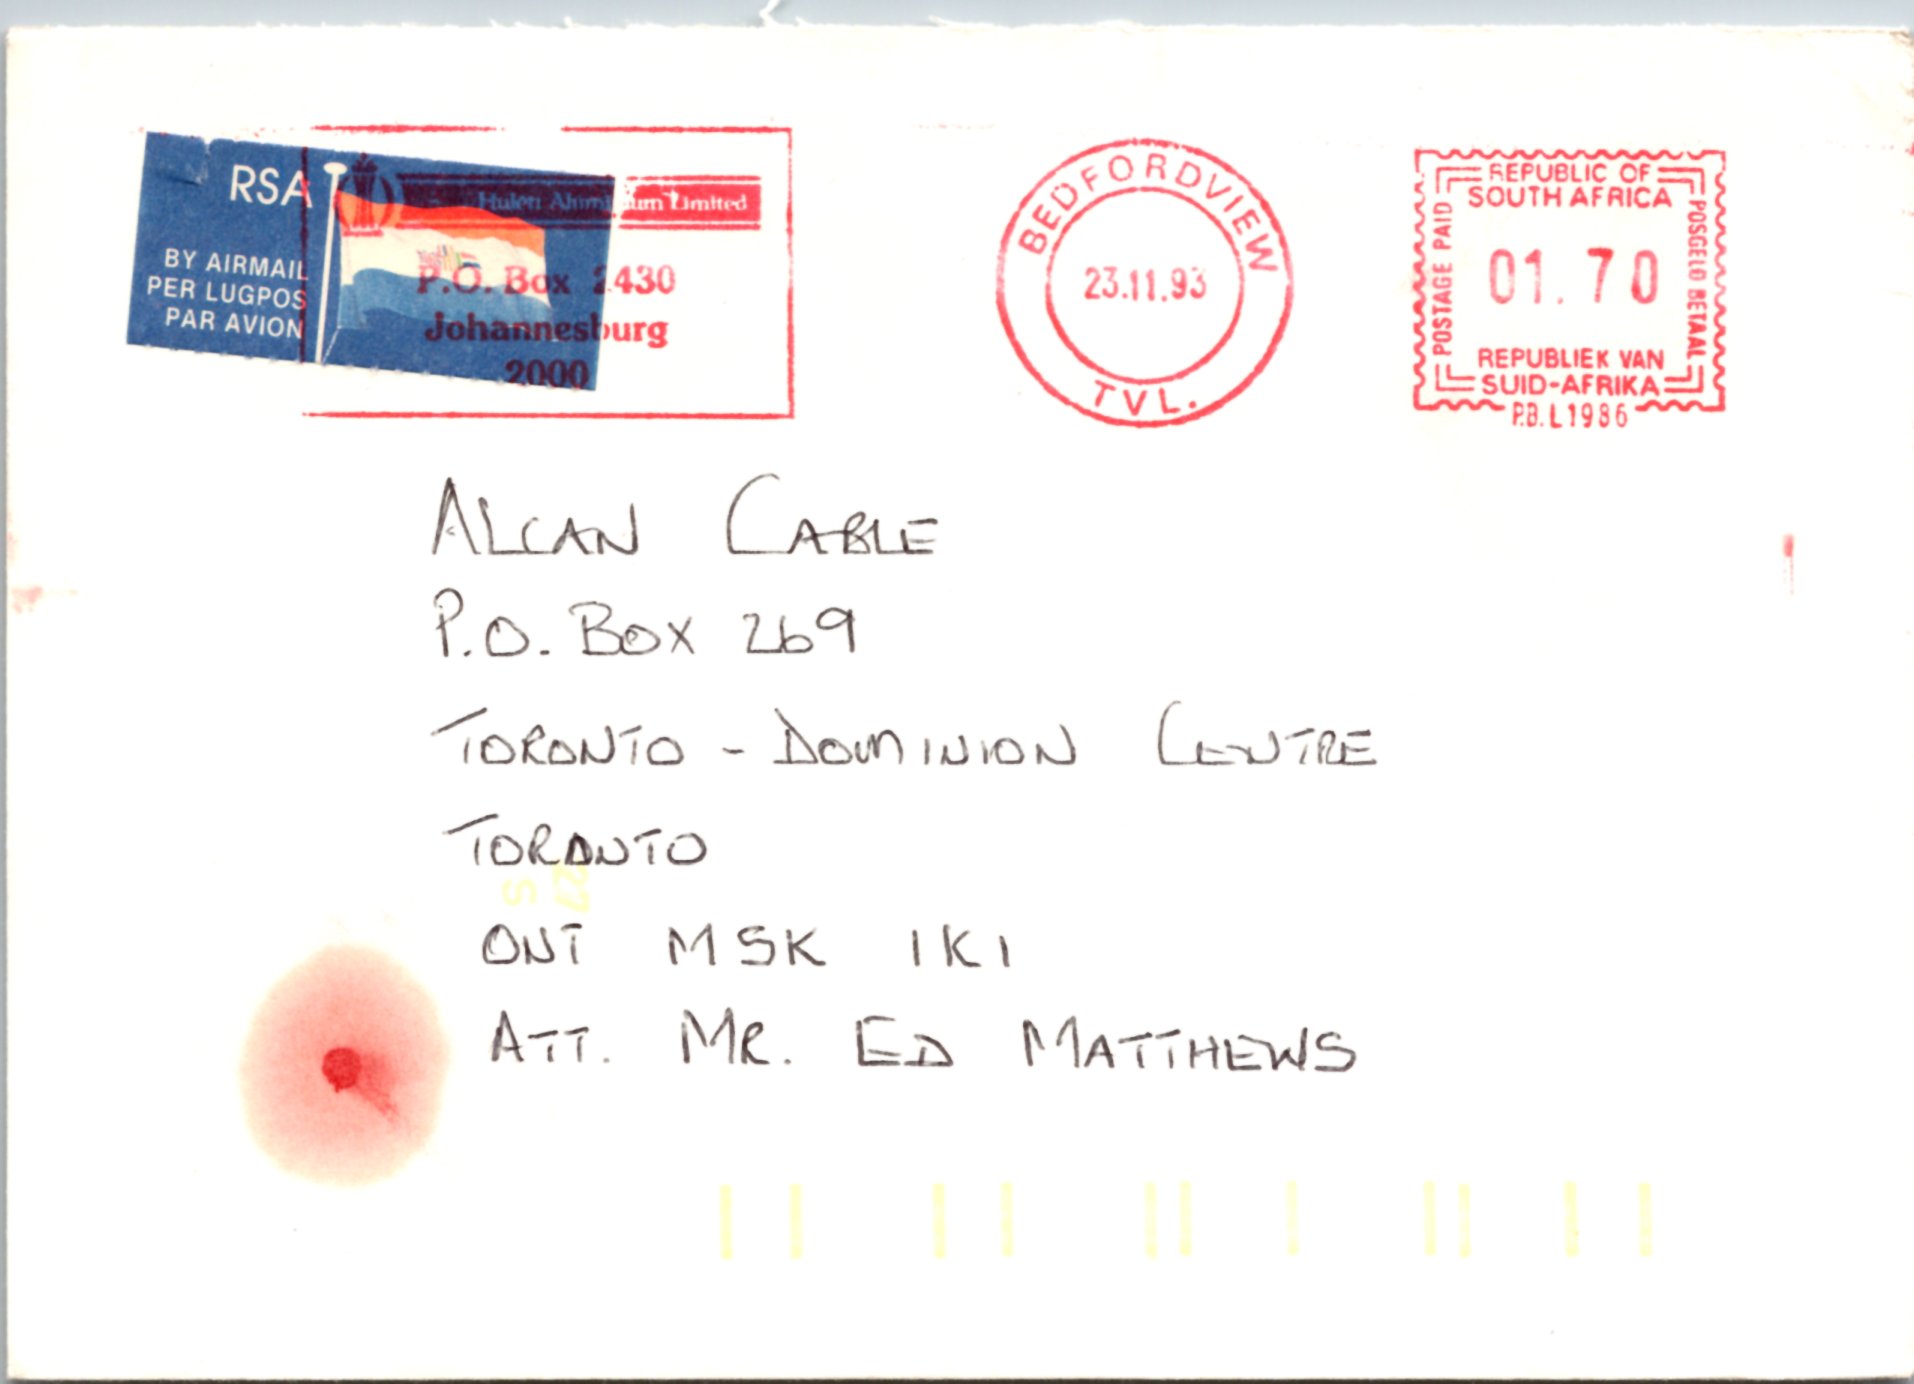 RSA
BY AIRMAIL
PER LUGPOS
PAR AVION
Hulett Aluminium Limited
P.O. Box 2430
Johannesburg
2000
BEDFORDVIEW
23.11.93
TVL.
REPUBLIC OF
SOUTH AFRICA
POSTAGE PAID
POSGELD BETAAL
01.70
REPUBLIEK VAN
SUID-AFRIKA
P.B.L1986
ALCAN CABLE
P.O. BOX 269
TORONTO - DOMINION CENTRE
TORONTO
27
S
ONT M5K 1K1
ATT. MR. ED MATTHEWS